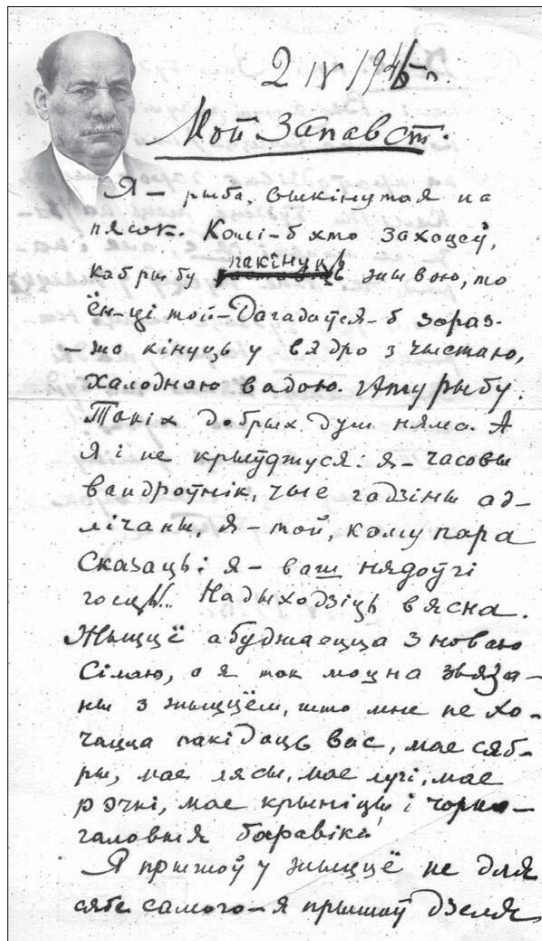 2 IV 1946 г.
Мой Запавет.
Я – рыба, выкінутая на
пясок. Калі-б хто захацеў,
каб рыбу пакінуць жывою, то
ён-ці той-Дагадаўся-б зараз-
-жа кінуць у вядро з чыстаю,
халоднаю вадою гэту рыбу.
Такіх добрых душ няма. А
я і не крыўджуся: я – часовы
вандроўнік, чые гадзіны ад-
лічаны, я – той, каму пара
сказаць: я – ваш нядоўгі
госць!.. Надыходзіць вясна.
Жыццё абуджаецца з новаю
сілаю, а я так моцна звяза-
ны з жыццём, што мне не хо-
чацца пакідаць вас, мае сяб-
ры, мае лясы, мае лугі, мае
рэчкі, мае крыніцы і чорна-
галовыя баравікі!
Я прышоў у жыццё не для
сябе самога – я прышоў дзеля